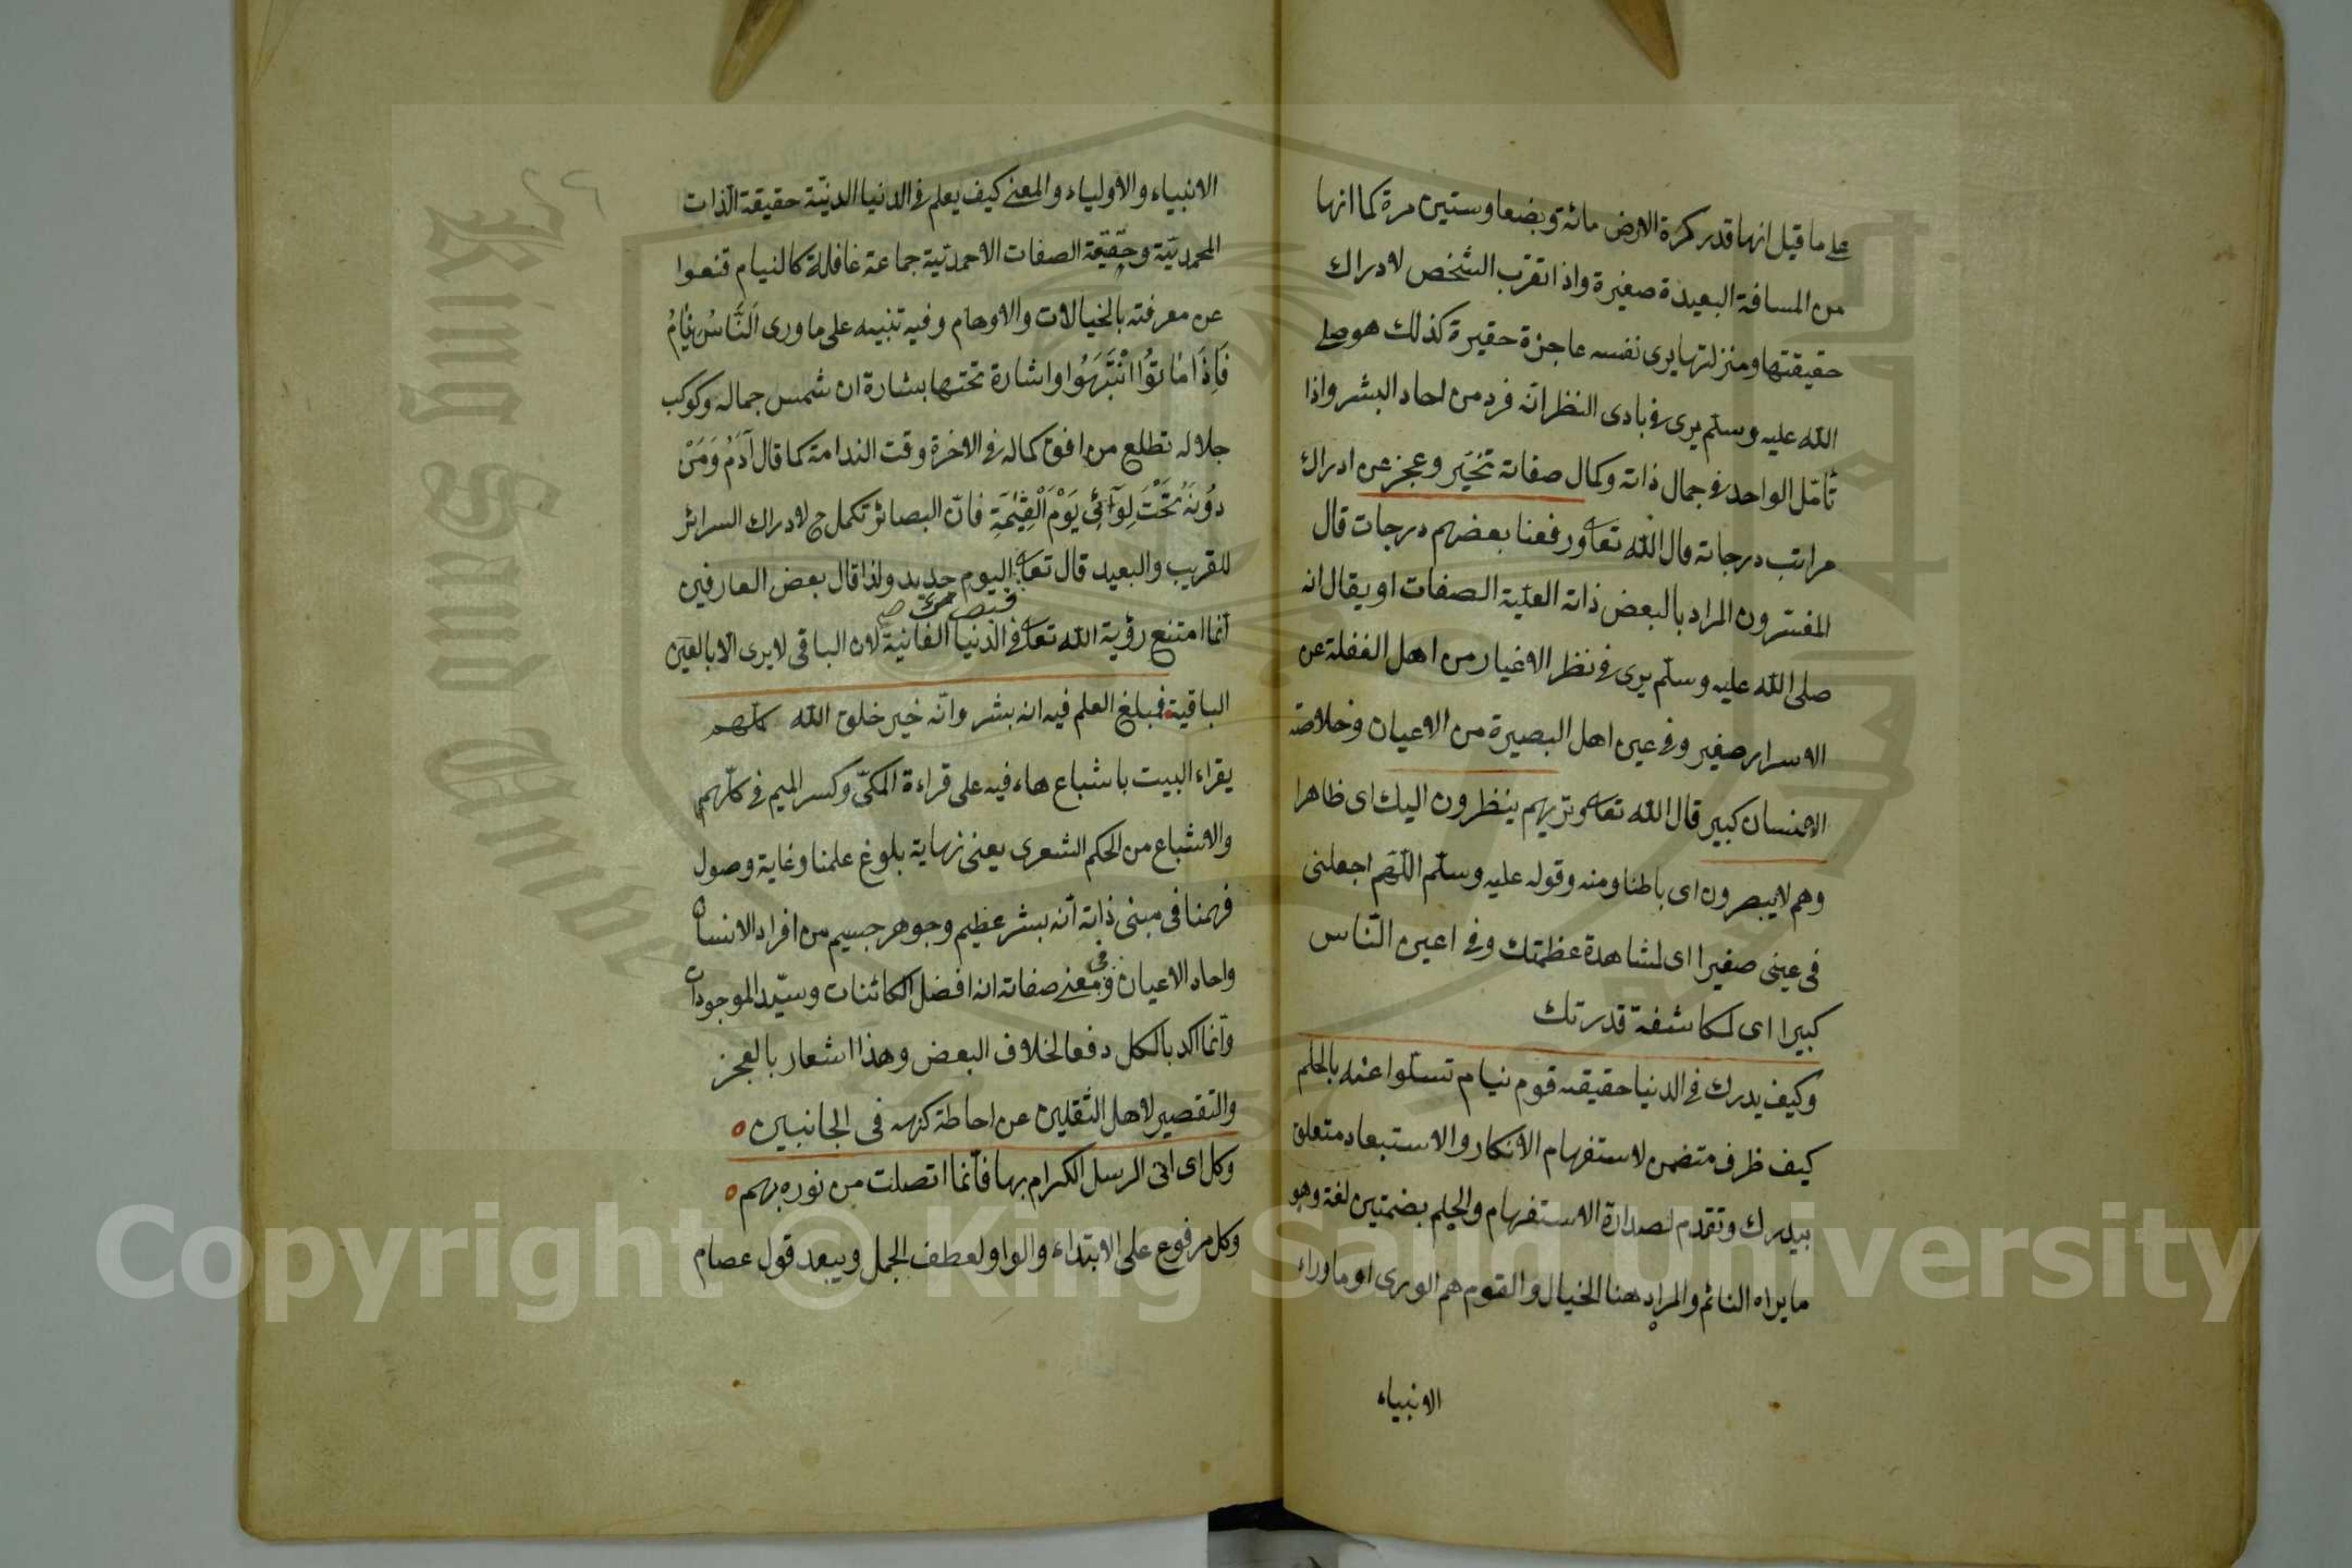 على ما قيل انها قدر كرة الارض مائة وبضعا وستين مرة كما انها
من المسافة البعيدة صغيرة واذا تقرب الشخص لادراك
حقيقتها ومنزلتها يرى نفسه عاجزة حقيرة كذلك هو صلى
الله عليه وسلم يرى في بادى النظر انه فرد من احاد البشر واذا
تأمّل الواحد في جمال ذاته وكمال صفاته تحيّر وعجز عن ادراك
مراتب درجاته قال الله تعا ورفعنا بعضهم درجات قال
المفسّرون المراد بالبعض ذاته العليّة الصفات او يقال انه
صلى الله عليه وسلّم يرى في نظر الاغيار من اهل الغفلة عن
الاسرار صغير وفى عين اهل البصيرة من الاعيان وخلاصة
الانسان كبير قال الله تعا وتريهم ينظرون اليك اى ظاهرا
وهم لا يبصرون اى باطنا ومنه وقوله عليه وسلّم اللّهم اجعلنى
فى عينى صغيرا اى لمشاهدة عظمتك وفى اعين النّاس
كبيرا اى لمكاشفة قدرتك
وكيف يدرك في الدنيا حقيقته قوم نيام تسلّوا عنه بالحلم
كيف ظرف متضمن لاستفهام الانكار والاستبعاد متعلق
بيدرك وتقدم لصدارة الاستفهام والحلم بضمتين لغة وهو
ما يراه النائم والمراد هنا الخيال والقوم هم الورى او ما وراء
الانبياء
٢٦
الانبياء والاولياء والمعنى كيف يعلم في الدنيا الدنيّة حقيقة الذّات
المحمديّة وحقيقة الصفات الاحمديّة جماعة غافلة كالنيام قنعوا
عن معرفته بالخيالات والاوهام وفيه تنبيه على ما ورى اَلنَّاسُ نِيَامُ
فَاِذَا مَاتوُا انْتَبَهُوا واشارة تحتها بشارة ان شمس جماله وكوكب
جلاله تطلع من افق كماله في الاخرة وقت الندامة كما قال آدَمُ وَمَنْ
دُونَهُ تَحْتَ لِوَآئِى يَوْمَ الْقِيٰمَةِ فانّ البصائر تكمل ح لادراك السرائر
للقريب والبعيد قال تعا اليوم حديد ولذا قال بعض العارفين
فبصرك صح
انّما امتنع رؤية الله تعا في الدنيا الفانية لان الباقى لا يرى الا بالعين
الباقية فمبلغ العلم فيه انه بشر وانّه خير خلق الله كلّهم
يقراء البيت باشباع هاء فيه على قراءة المكىّ وكسر الميم فى كلّهم
والاشباع من الحكم الشعرى يعنى نهاية بلوغ علمنا وغاية وصول
فهمنا فى مبنى ذاته أنه بشر عظيم وجوهر جسيم من افراد الانسان
واحاد الاعيان وفى معنى صفاته انه افضل الكائنات وسيّد الموجودات
وانّما اكد بالكل دفعا لخلاف البعض وهذا اشعار بالعجز
والتقصير لاهل الثقلين عن احاطة كنهه فى الجانبين
وكل اى اتى الرسل الكرام بها فانّما اتصلت من نوره بهم
وكل مرفوع على الابتداء والواو لعطف الجمل ويبعد قول عصام
King Saud University
Copyright © King Saud University